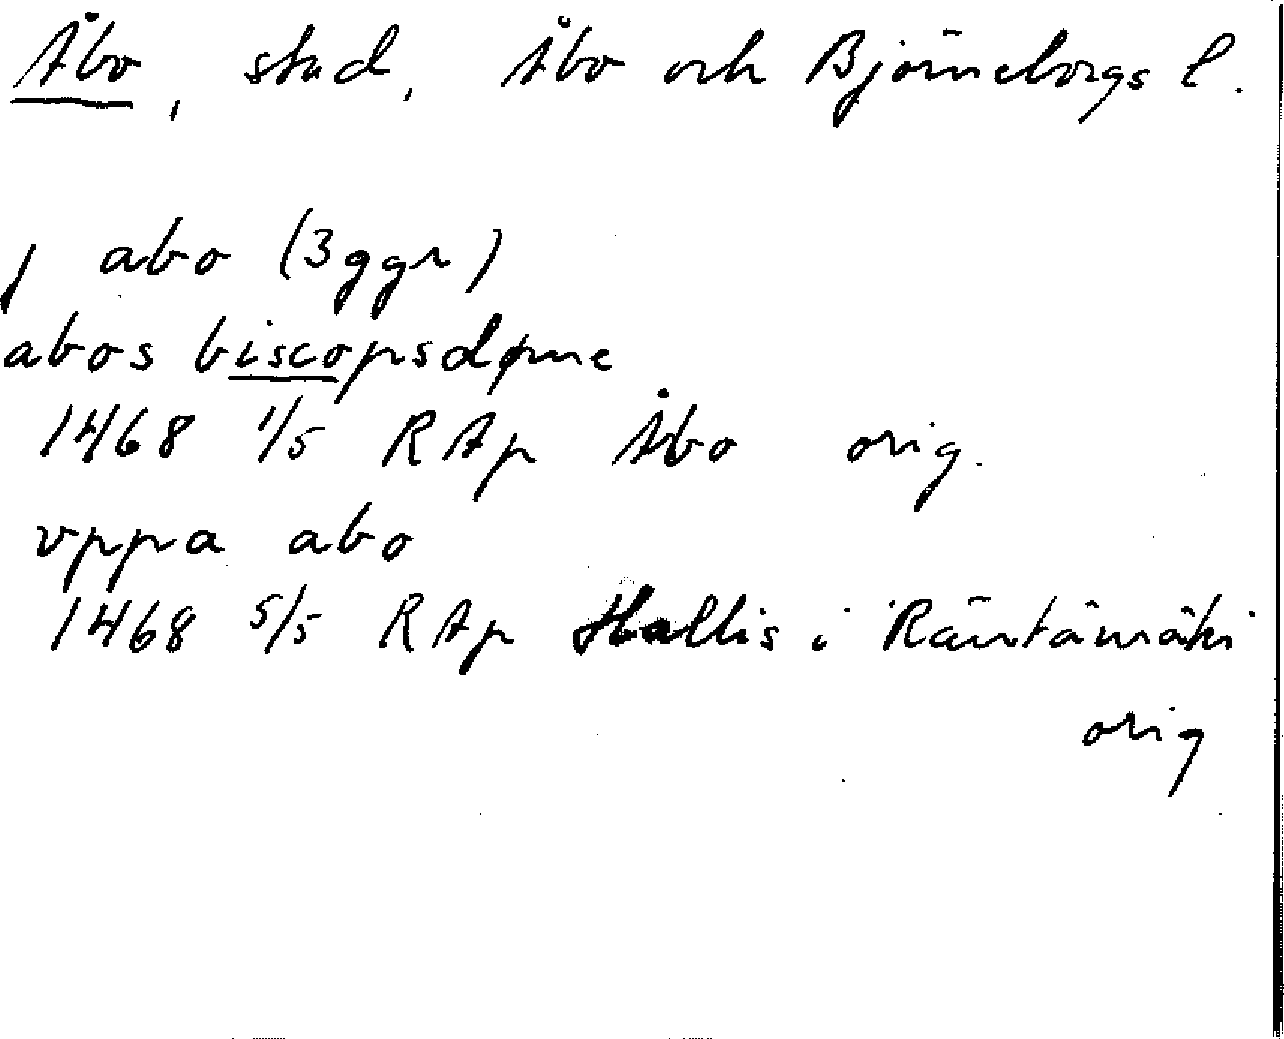 Åbo, stad, Åbo och Björneborgs l.
j abo (3 ggr)
abos biscopsdøme
1468 1/5 RAp Åbo orig.
vppa abo
1468 5/5 RAp Hallis i Räntämäki
orig